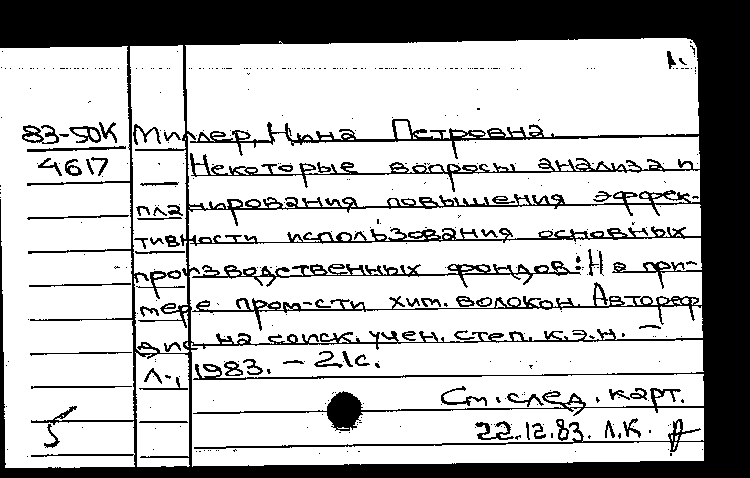 1.
83-50К Миллер, Нина Петровна.
4617 Некоторые вопросы анализа и
планирования повышения эффек-
тивности использования основных
производственных фондов: На при-
мере пром-сти хим. волокон. Автореф.
дис. на соиск. учен. степ. к.э.н. –
Л., 1983. – 21с.
См. след. карт.
5 22.12.83. Л.К.